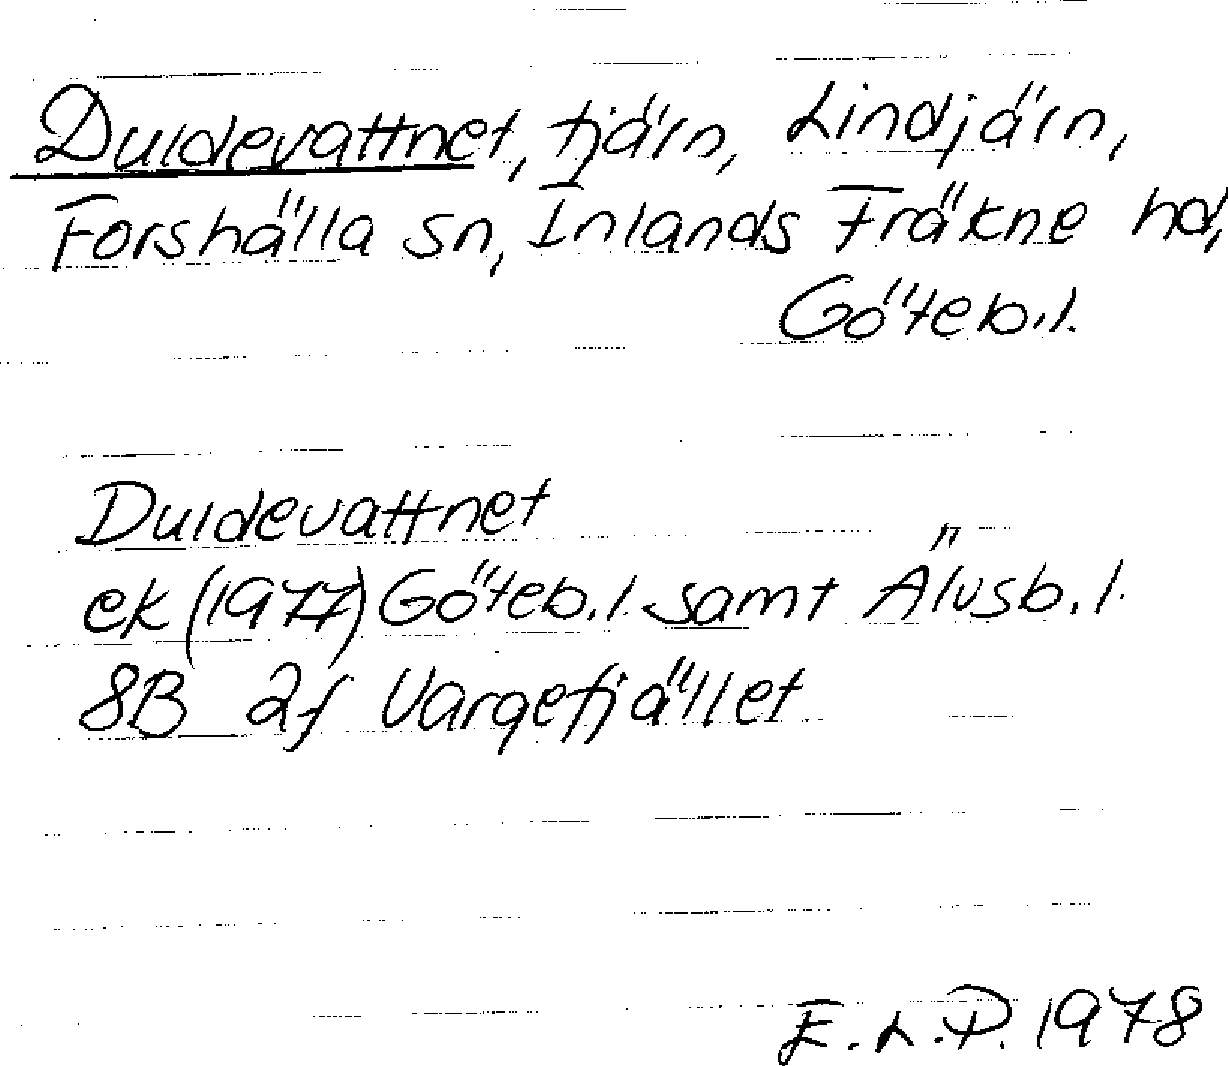 Duldevattnet, tjärn, Lindjärn,
Forshälla sn, Inlands Fräkne hd,
Göteb.l.
Duldevattnet
ek (1977) Göteb.l. samt Älvsb.l.
8B 2f Vargefjället
E.L.P. 1978